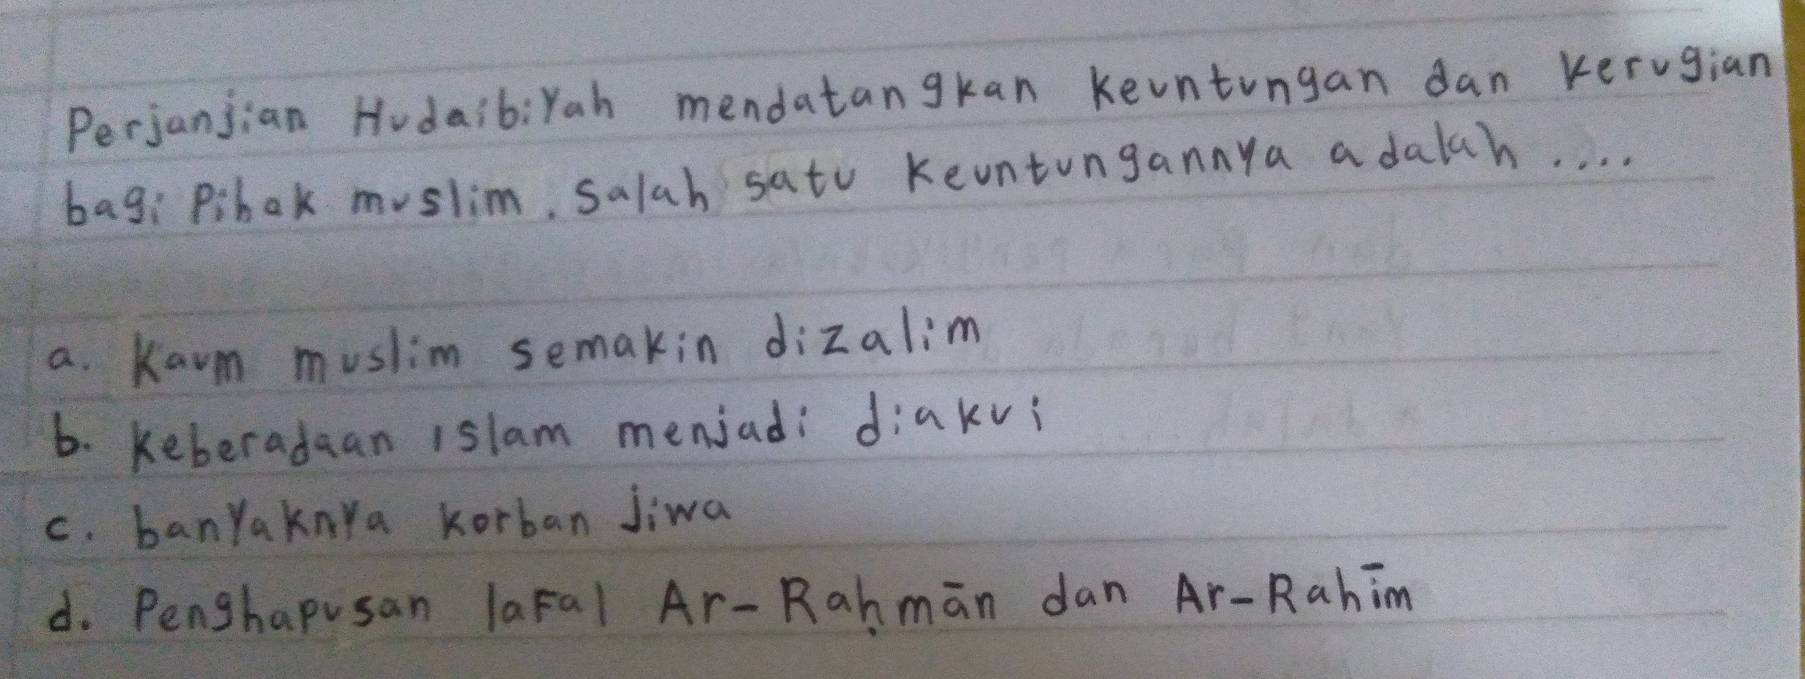 Perjanjian Hudaibiyah mendatangkan keuntungan dan kerugian
bagi Pihak muslim. Salah satu keuntungannya adalah ....
a. Kaum muslim semakin dizalim
b. Keberadaan islam menjadi diakui
c. banyaknya korban jiwa
d. Penghapusan lafal Ar-Raḥmān dan Ar-Rahīm